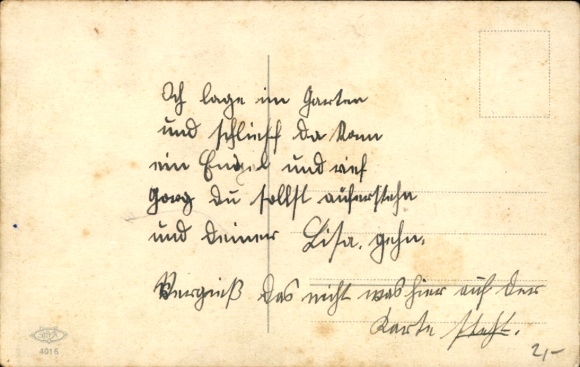 Ich lage im Garten
und schlieff da kam
ein Engel und rief
Georg du sollst auferstehn
und deiner Lisa, gehn,
Vergieß das nicht was hier auf der
Karte steht.
2,-
4016